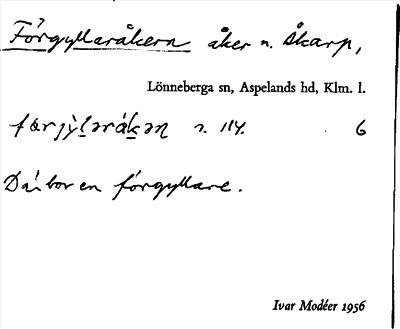 Förgyllaråkern åker n. Åkarp,
Lönneberga sn, Aspelands hd, Klm. l.
n. 114. 6
Där bor en förgyllare.
Ivar Modéer 1956